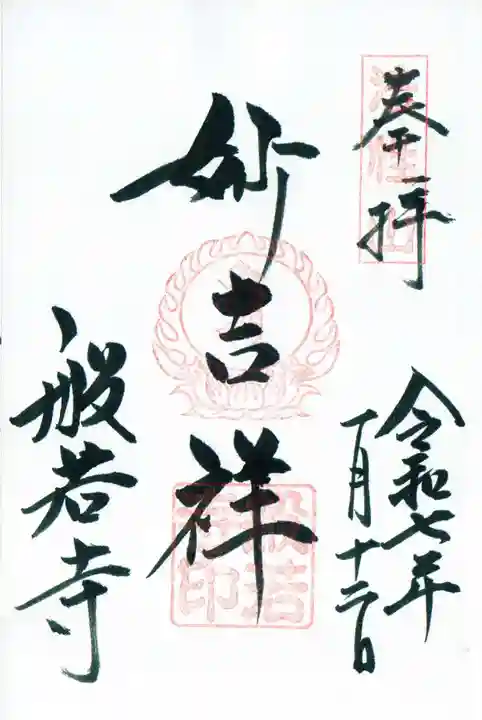 奉拝
令和七年
一月十二日
妙吉祥
般若寺
法性山
般若寺印